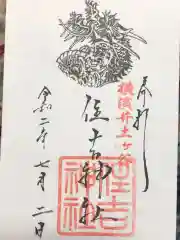 奉拝
横浜井土ヶ谷
住吉神社
住吉神社
令和二年七月二日